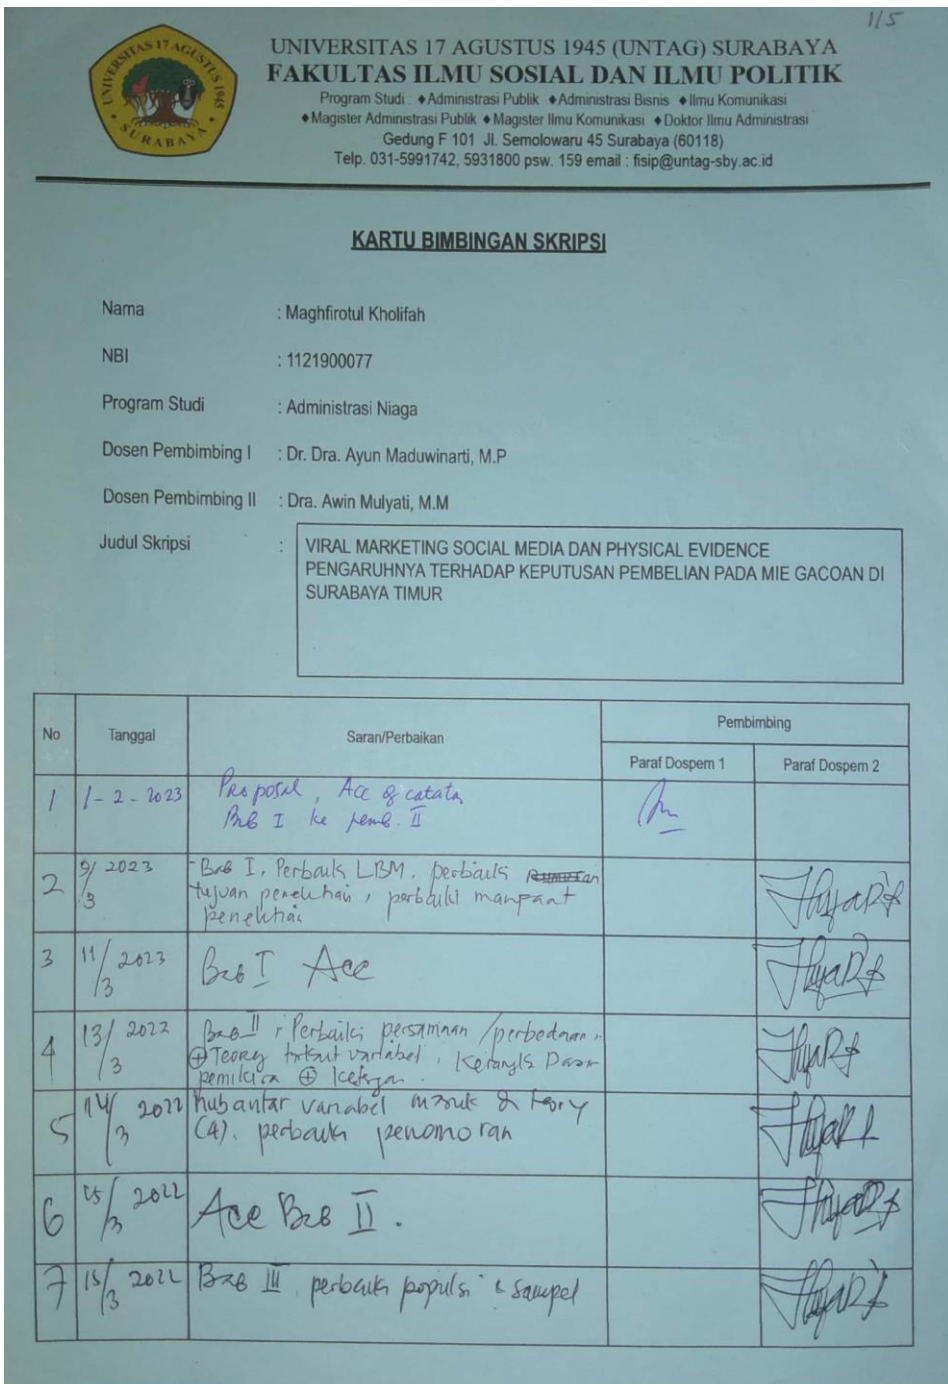 1/5
UNIVERSITAS 17 AGUSTUS 1945
SURABAYA
UNIVERSITAS 17 AGUSTUS 1945 (UNTAG) SURABAYA
FAKULTAS ILMU SOSIAL DAN ILMU POLITIK
Program Studi : ♦Administrasi Publik ♦Administrasi Bisnis ♦Ilmu Komunikasi
♦Magister Administrasi Publik ♦Magister Ilmu Komunikasi ♦Doktor Ilmu Administrasi
Gedung F 101 Jl. Semolowaru 45 Surabaya (60118)
Telp. 031-5991742, 5931800 psw. 159 email : fisip@untag-sby.ac.id
KARTU BIMBINGAN SKRIPSI
Nama : Maghfirotul Kholifah
NBI : 1121900077
Program Studi : Administrasi Niaga
Dosen Pembimbing I : Dr. Dra. Ayun Maduwinarti, M.P
Dosen Pembimbing II : Dra. Awin Mulyati, M.M
Judul Skripsi : VIRAL MARKETING SOCIAL MEDIA DAN PHYSICAL EVIDENCE
PENGARUHNYA TERHADAP KEPUTUSAN PEMBELIAN PADA MIE GACOAN DI
SURABAYA TIMUR
No Tanggal Saran/Perbaikan Pembimbing
Paraf Dospem 1 Paraf Dospem 2
1 1-2-2023 Proposal, Acc
Bab I ke pemb. II
2 9/3 2023 - Bab I, Perbaiki LBM, perbaiki
tujuan penelitian, perbaiki manfaat
penelitian
3 11/3 2023 Bab I Acc
4 13/3 2022 Bab II, Perbaiki persamaan/perbedaan,
⊕ Teory variabel, Kerangka Dasar
pemikiran ⊕
5 14/3 2022 hub antar variabel masuk teory
(4). perbaiki penomoran
6 15/3 2022 Acc Bab II.
7 15/3 2022 Bab III perbaiki populsi & sampel